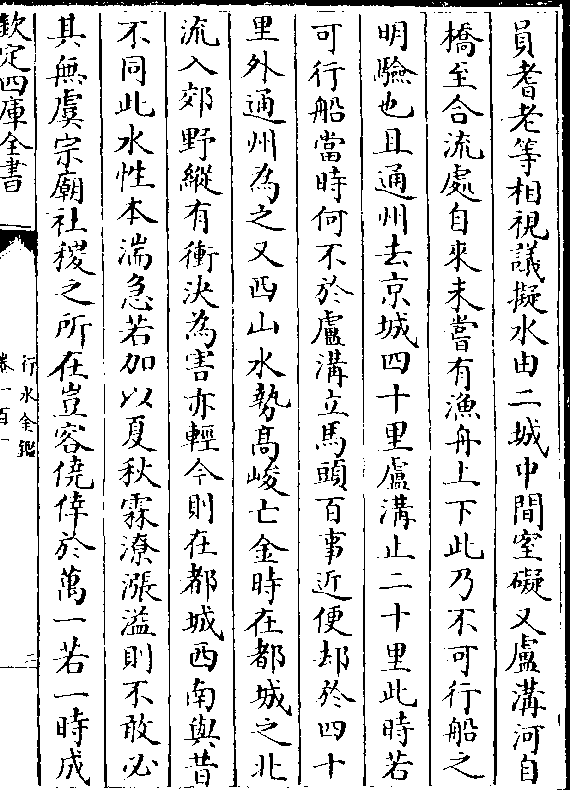 員耆老等相視議擬水由二城中間窒礙又盧溝河自
橋至合流處自來未嘗有漁舟上下此乃不可行船之
明驗也且通州去京城四十里盧溝止二十里此時若
可行船當時何不於盧溝立馬頭百事近便却於四十
里外通州為之又西山水勢髙峻亡金時在都城之北
流入郊野縱有衝決為害亦輕今則在都城西南與昔
不同此水性本湍急若加以夏秋霖潦漲溢則不敢必
其無虞宗廟社稷之所在豈容僥倖於萬一若一時成
欽定四庫全書
行水金鑑
卷一百一
三